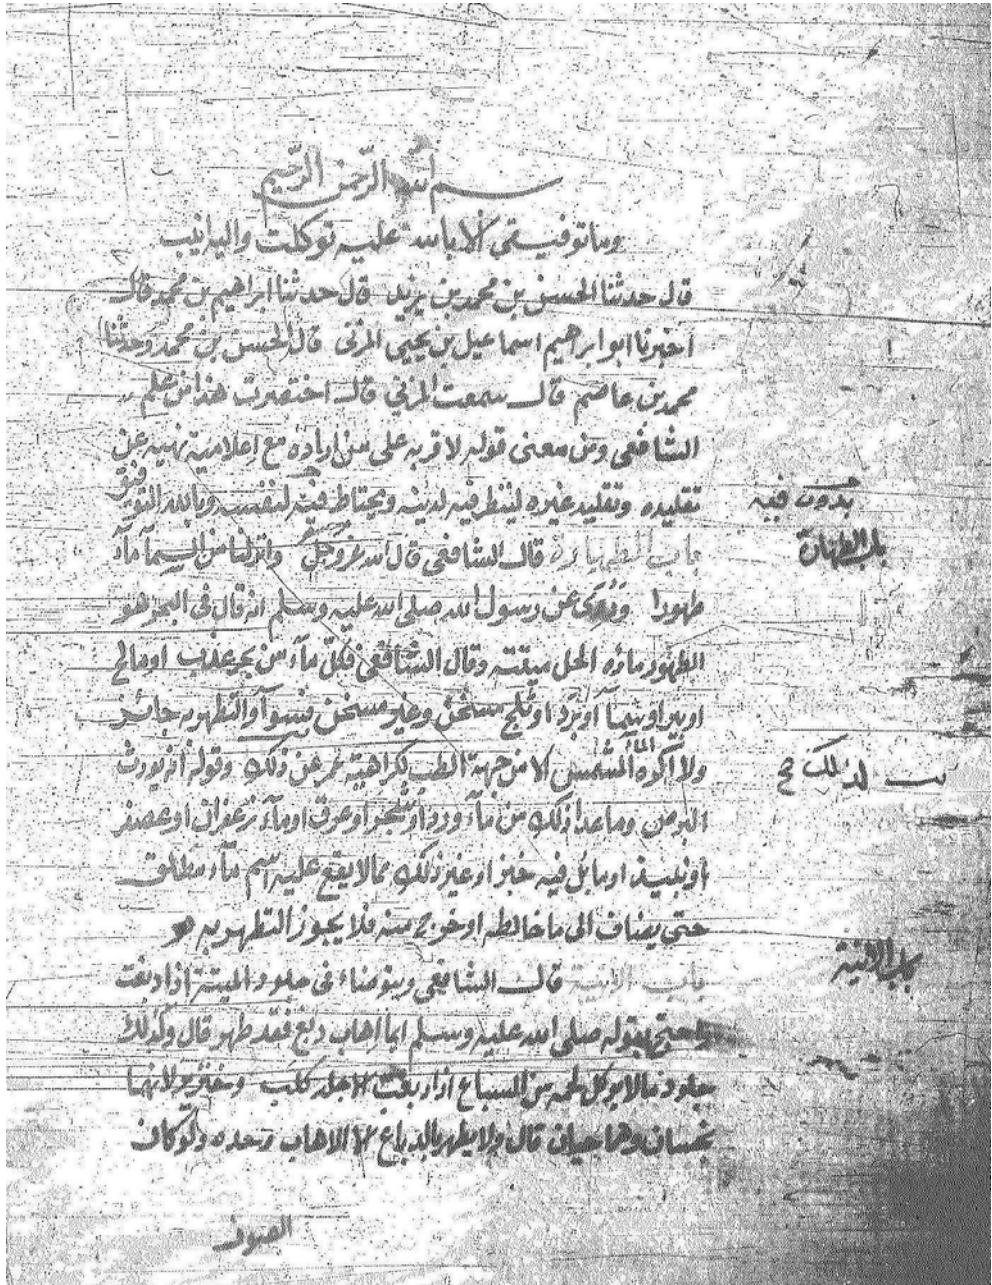 بسم الله الرحمن الرحيم
وما توفيقي الا بالله عليه توكلت واليه انيب
قال حدثنا الحسن بن محمد بن يزيد قال حدثنا ابراهيم بن محمد قال
اخبرنا ابو ابراهيم اسماعيل بن يحيى المزني قال الحسن بن محمد وحدثنا
محمد بن عاصم قال سمعت المزني قال اختصرت هذا من علم
الشافعي ومن معنى قوله لاقربه على من اراده مع اعلاميه نهيه عن
تقليده وتقليد غيره لينظر فيه لدينه ويحتاط فيه لنفسه وبالله التوفيق
بدون فيه
باب الطهارة قال الشافعي قال الله عز وجل وانزلنا من السماء ماء
باب الطهارة
طهورا وروى عن رسول الله صلى الله عليه وسلم انه قال في البحر هو
الطهور ماؤه الحل ميتته وقال الشافعي فكل ماء من بحر عذب او مالح
او بير او سماء او برد او ثلج مسخن وغير مسخن فسواء والتطهر به جائز
ولا اكره الماء المشمس الا من جهة الطب لكراهية عمر عن ذلك وقوله انه يورث
البرص وما عدا ذلك من ماء ورد او شجر او عرق او ماء زعفران او عصفر
او نبيذ او ما بل فيه خبز او غير ذلك مما لا يقع عليه اسم ماء مطلق
حتى يضاف الى ما خالطه او خرج منه فلا يجوز التطهر به
باب الانية
باب الانية قال الشافعي ويتوضاء في جلود الميتة اذا دبغت
واحتج بقوله صلى الله عليه وسلم ايما اهاب دبغ فقد طهر قال وكذلك
جلود ما لا يوكل لحمه من السباع اذا دبغت الا جلد كلب وخنزير لانهما
نجسان وهما حيان قال ولا يطهر بالدباغ الا الاهاب وحده ولو كان
الصوف